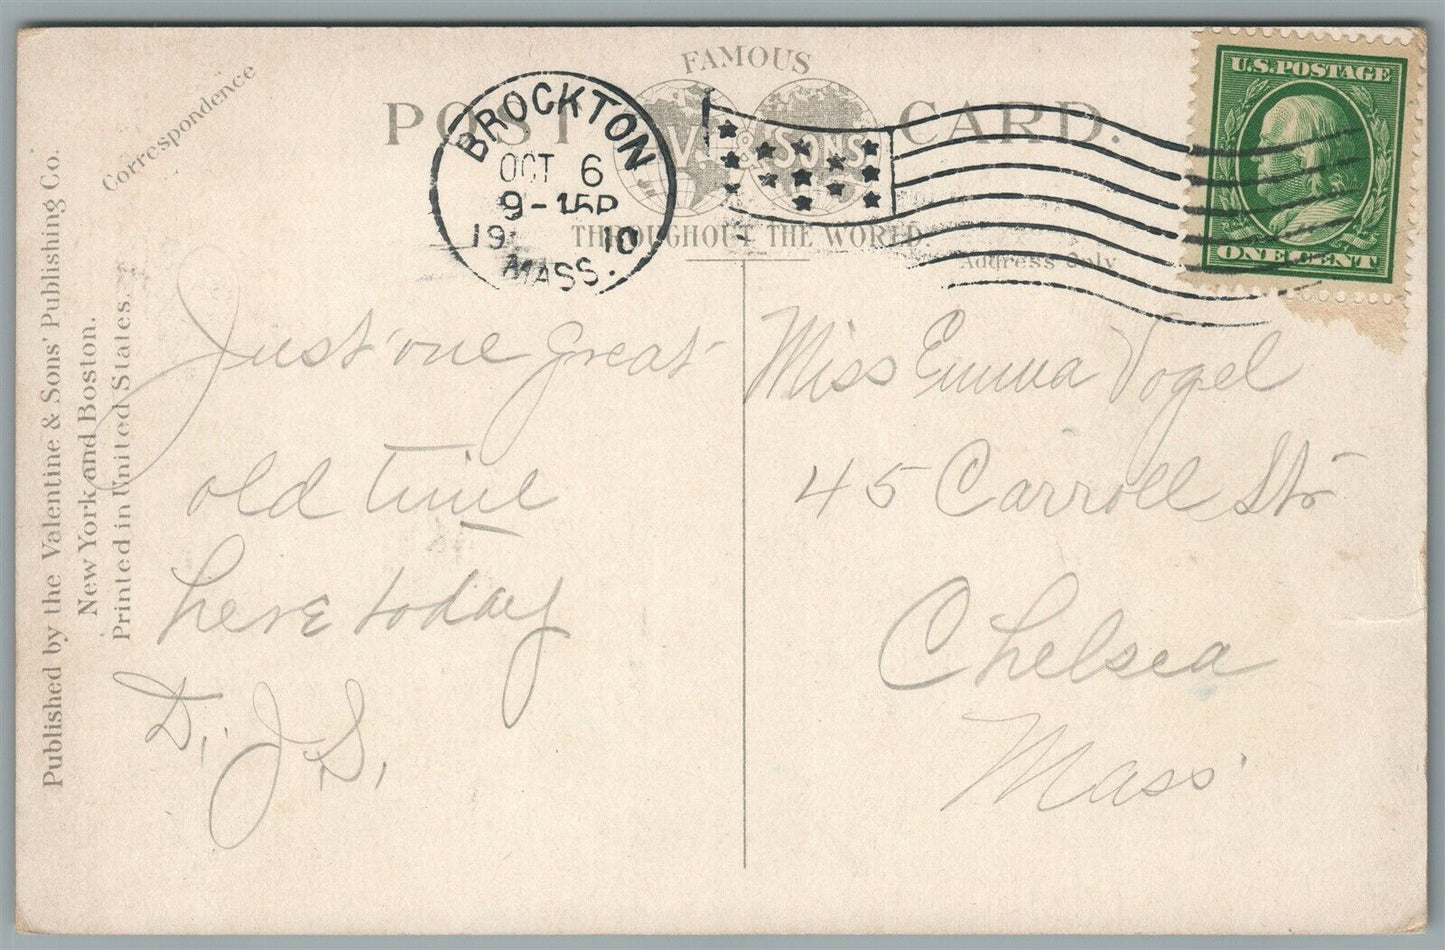 FAMOUS
POST CARD.
V. & SONS
THROUGHOUT THE WORLD.
Correspondence
Address Only
BROCKTON
OCT 6
9-15P
1910
MASS.
U.S.POSTAGE
ONE CENT
Published by the Valentine & Sons' Publishing Co.
New York and Boston.
Printed in United States.
Just one great
old time
here today
D. J. S.
Miss Emma Vogel
45 Carroll St
Chelsea
Mass